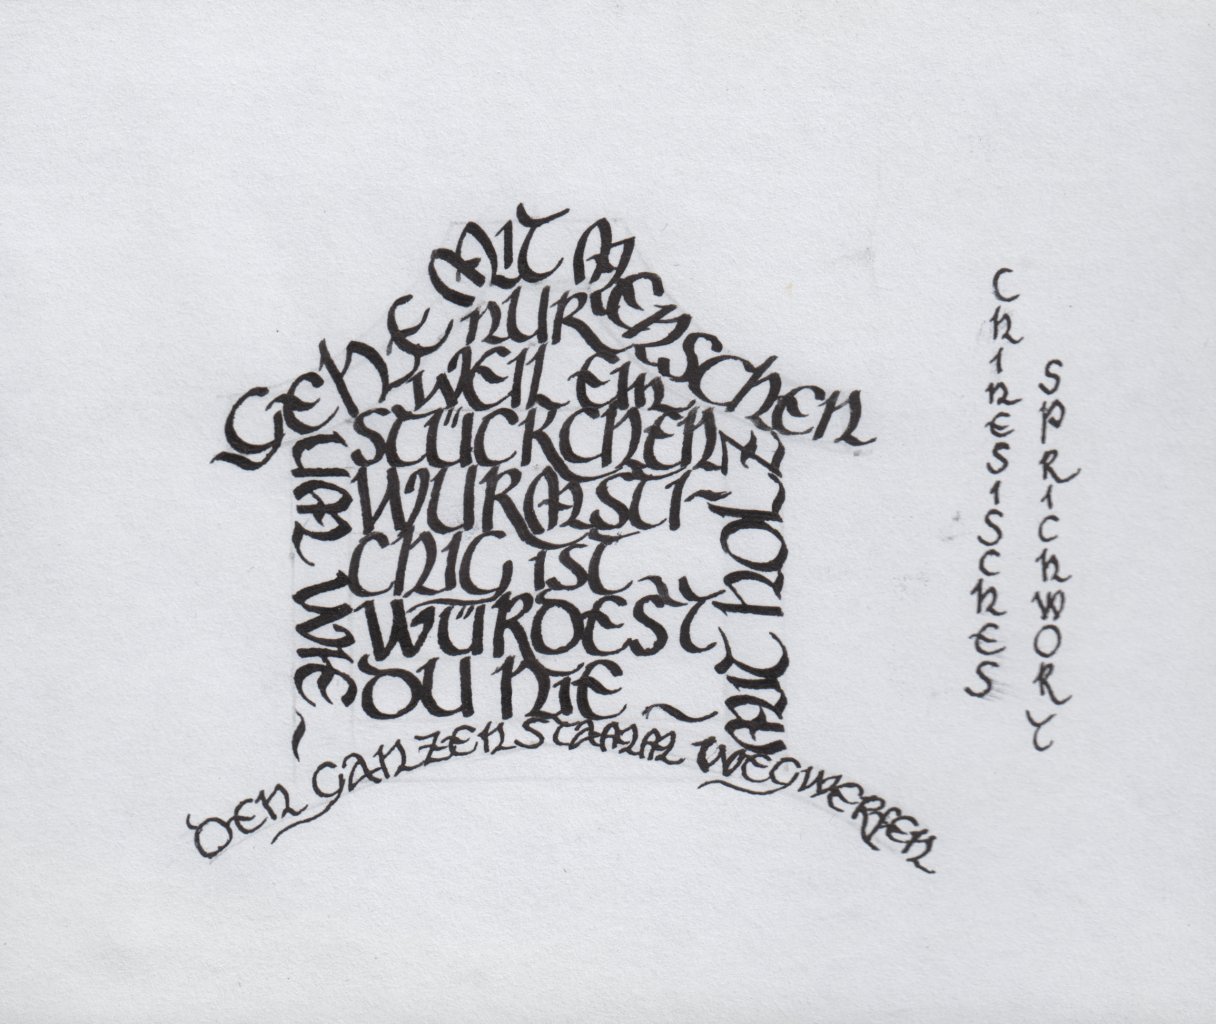 GEHE MIT MENSCHEN
UM WIE ~
MIT HOLZ
NUR
WEIL EIN
STÜCKCHEN
WURMSTI~
CHIG IST
WÜRDEST
DU NIE ~
DEN GANZEN STAMM WEGWERFEN
CHINESISCHES
SPRICHWORT